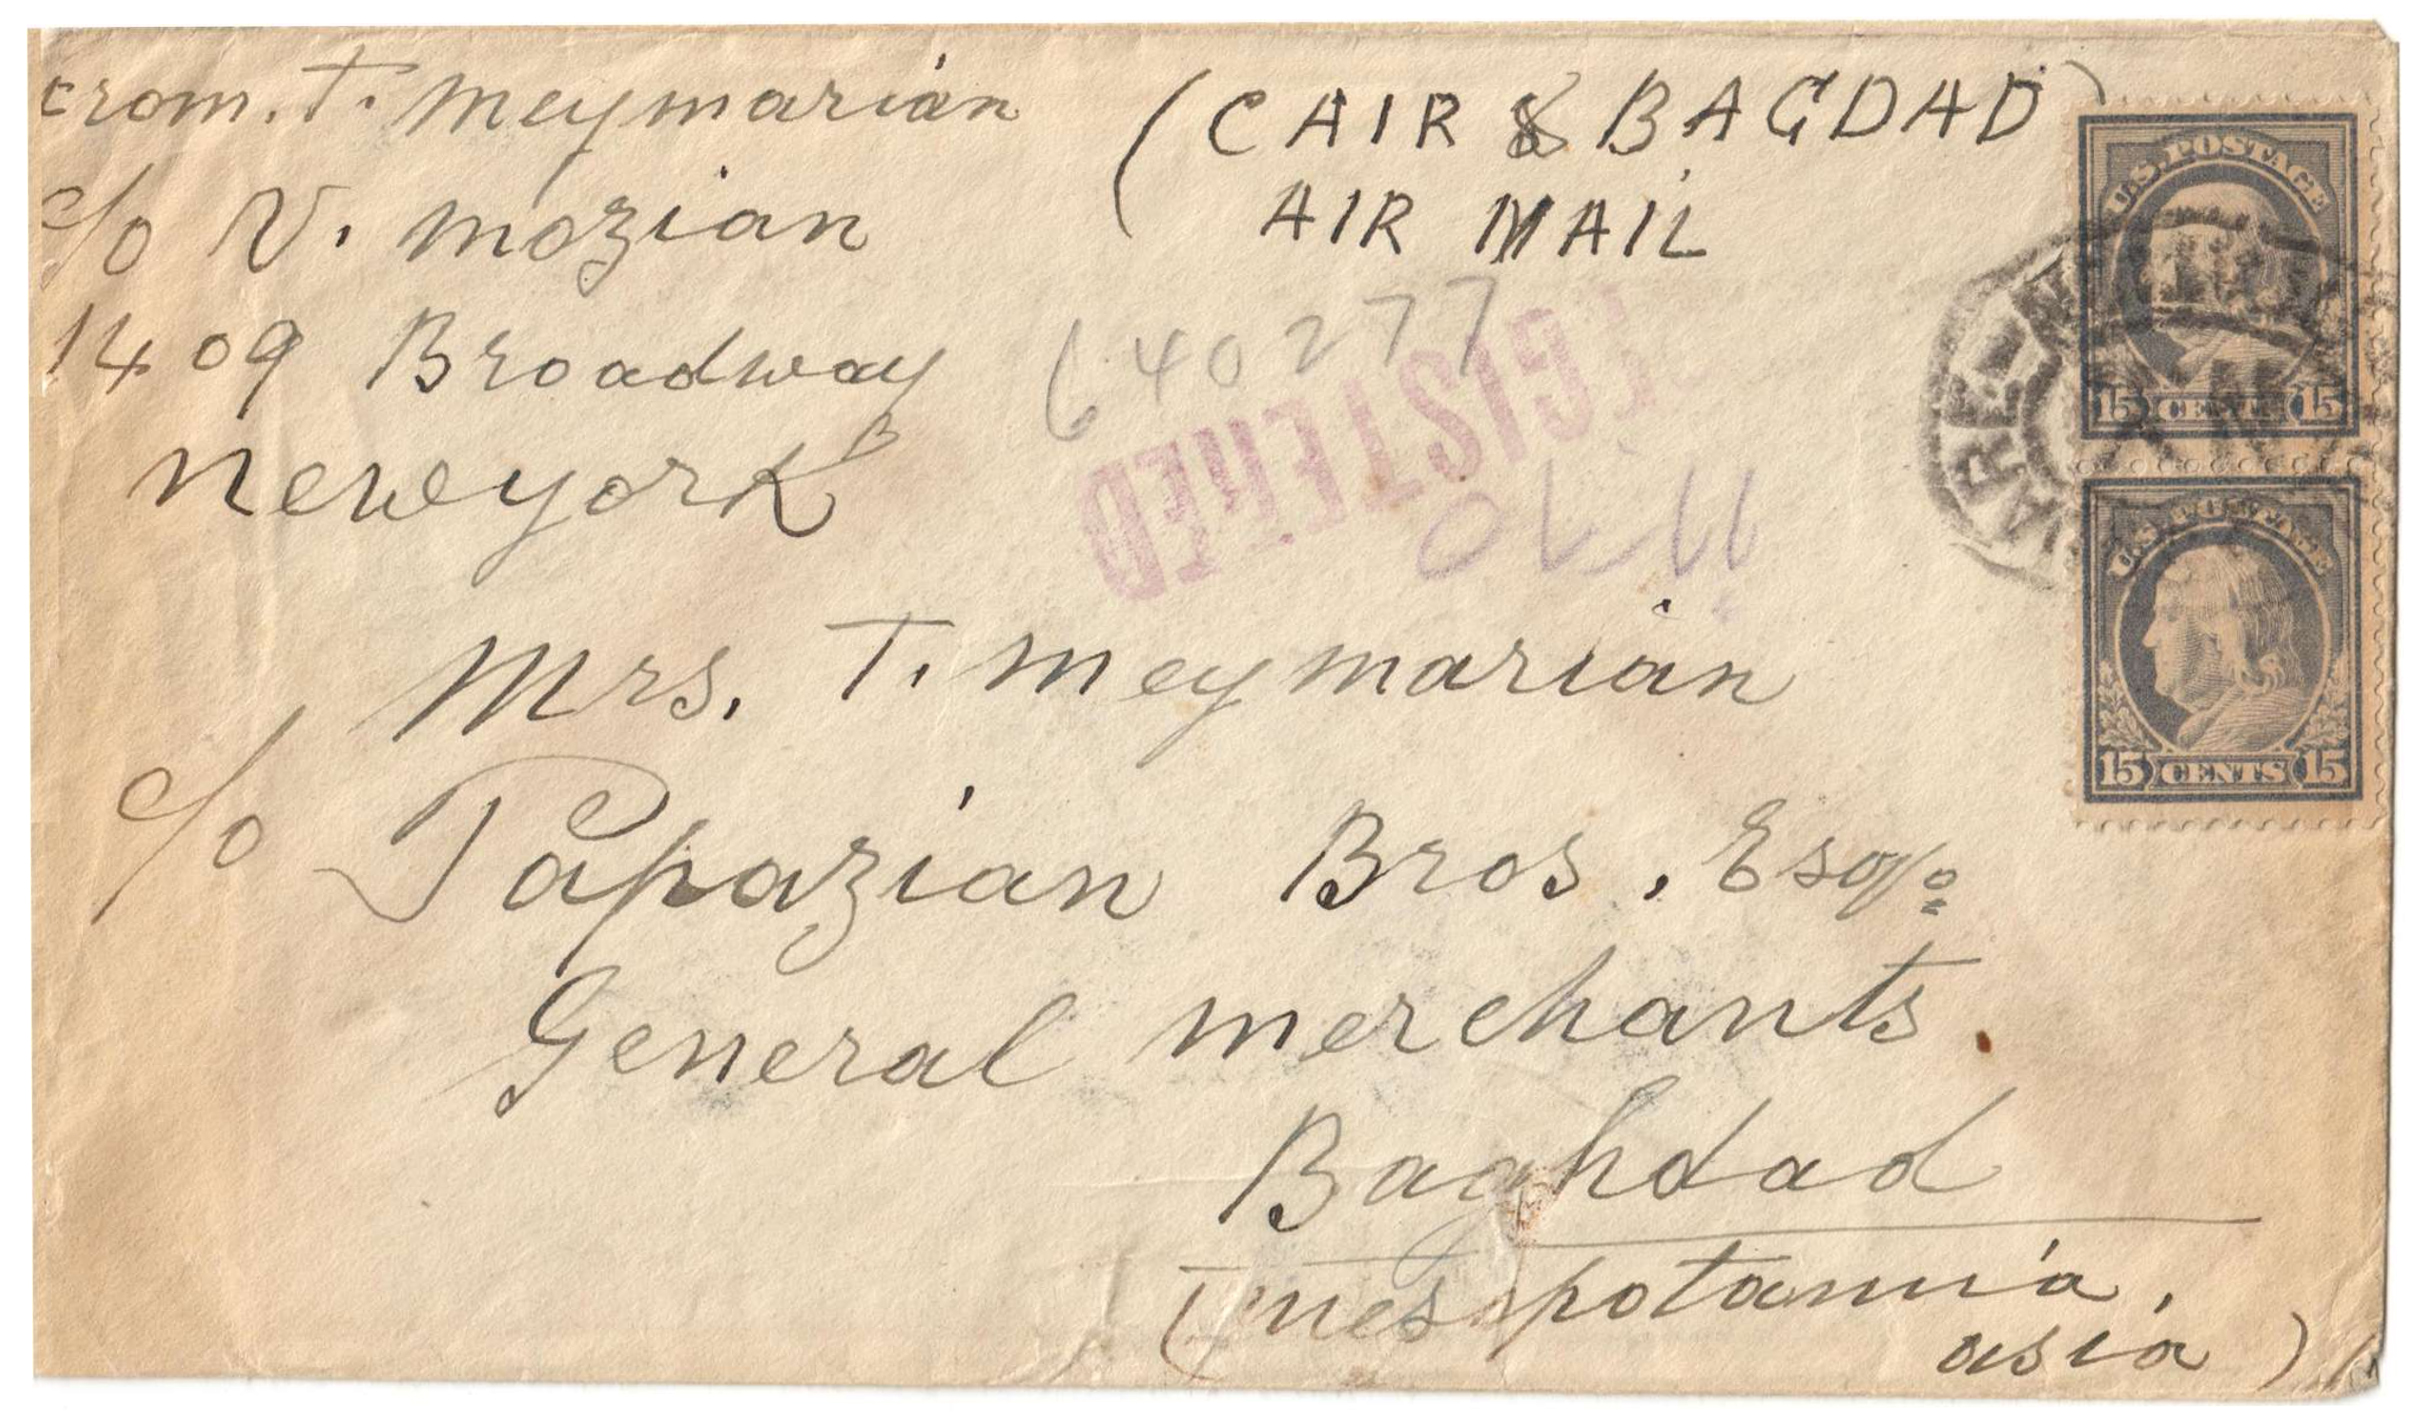 From. T. Meymarian
c/o V. Mozian
1409 Broadway
Newyork
(CAIR & BAGDAD)
AIR MAIL
640277
REGISTERED
U.S. POSTAGE
15 CENTS 15
U.S. POSTAGE
15 CENTS 15
Mrs. T. Meymarian
c/o Papazian Bros. Esqo
General merchants.
Baghdad
(mesopotamia,
asia)